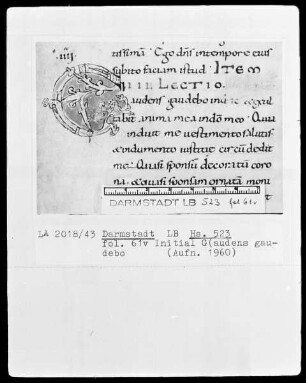 .iiij.
tissimā. Ego dn̄s in tempore eius
subito faciam istud. ITEM
IIII LECTIO.
audens gaudebo in d
tabit anima mea in dō meo. Quia
induit me vestimento salutis
& indumento iustitię circū dedit
me. Quasi sponsū decoratū coro
na. & quasi sponsam ornatā moni
DARMSTADT LB 523 fol 61v
LA 2018/43 Darmstadt LB Hs. 523
fol. 61v Initial G(audens gau-
debo (Aufn. 1960)